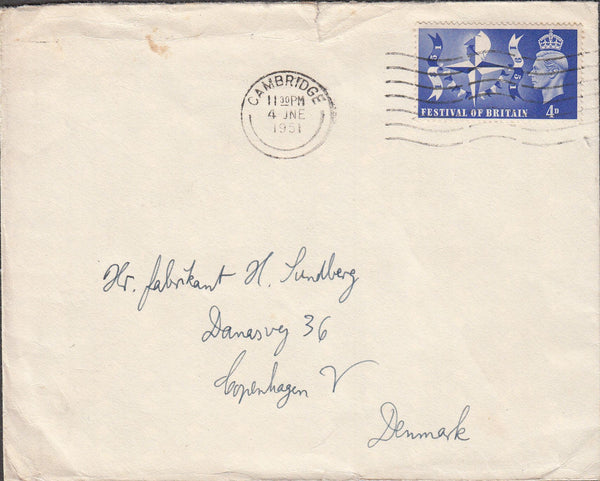 CAMBRIDGE
11 30PM
4 JNE
1951
1851
1951
FESTIVAL OF BRITAIN 4D
Hr. fabrikant H. Sundberg
Danasvej 36
Copenhagen V
Denmark